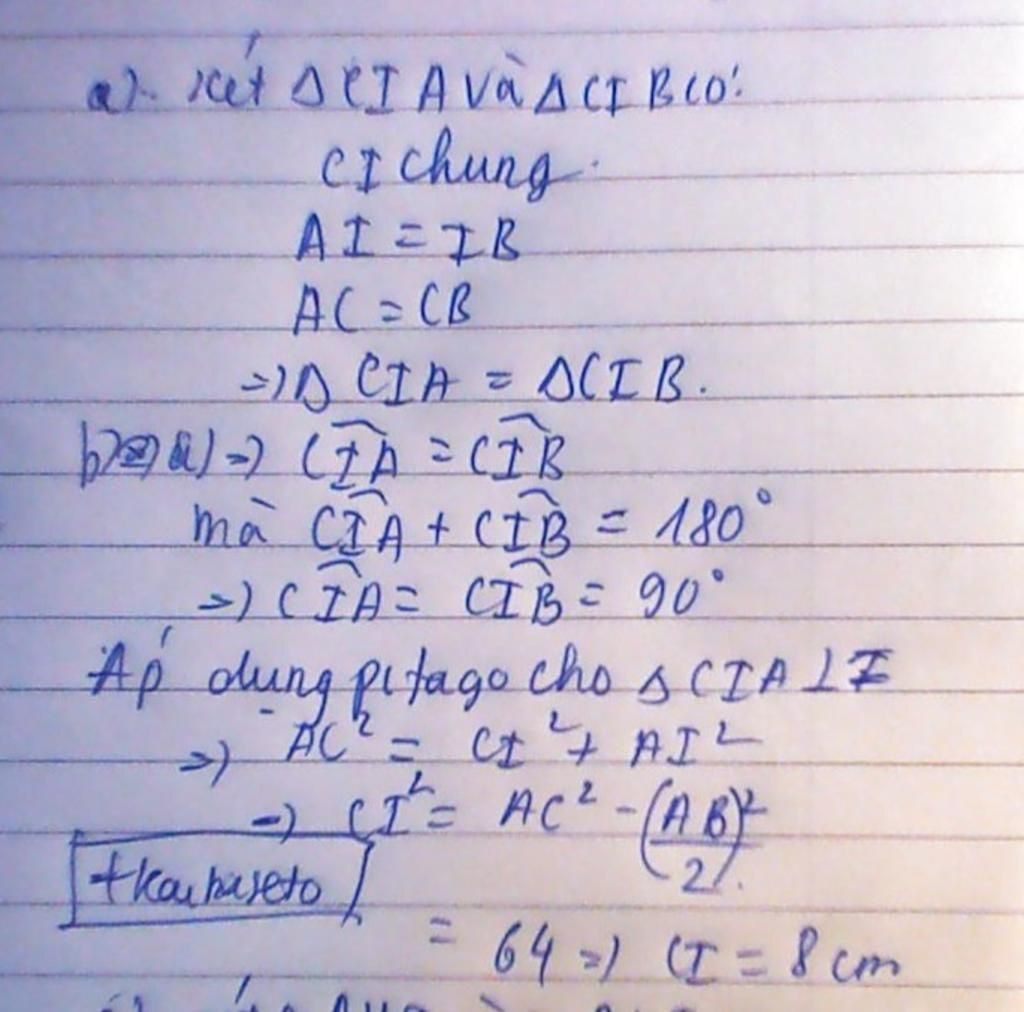 a). Xét Δ CIA và Δ CIB có:
CI chung.
AI = IB
AC = CB
=> Δ CIA = ΔCIB.
b) a) => CIA = CIB
mà CIA + CIB = 180°
=> CIA = CIB = 90°
Áp dụng pitago cho Δ CIA ⊥ I
=> AC² = CI² + AI²
=> CI² = AC² - (AB/2)².
= 64 => CI = 8 cm